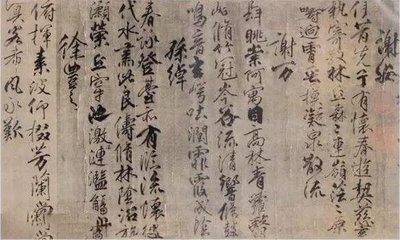 謝安
伊昔先子有懷春遊契茲言
執寄敖林丘森森連嶺茫茫原
疇迥霄垂霧凝泉散流
謝万
肆眺崇阿寓目高林青蘿翳
岫脩竹冠岑谷流清響條鼓
鳴音玄崿吐潤霏霧成陰
孫綽
春詠登臺亦有臨流懷彼
伐木肅此良儔脩林陰沼旋
瀨縈丘穿池激連濫觴
徐豐之
俯揮素波仰掇芳蘭尚
客希風永歎